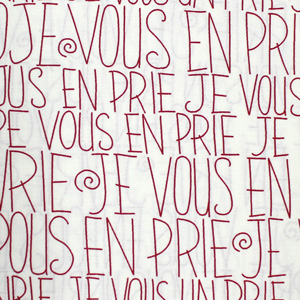 VOUS UN PRIE
JE VOUS EN PRI
OUS EN PRIE JE VOUS
VOUS EN PRIE JE
RIE JE VOUS EN
VOUS EN PRIE JE
PRIE JE VOUS UN PRIE